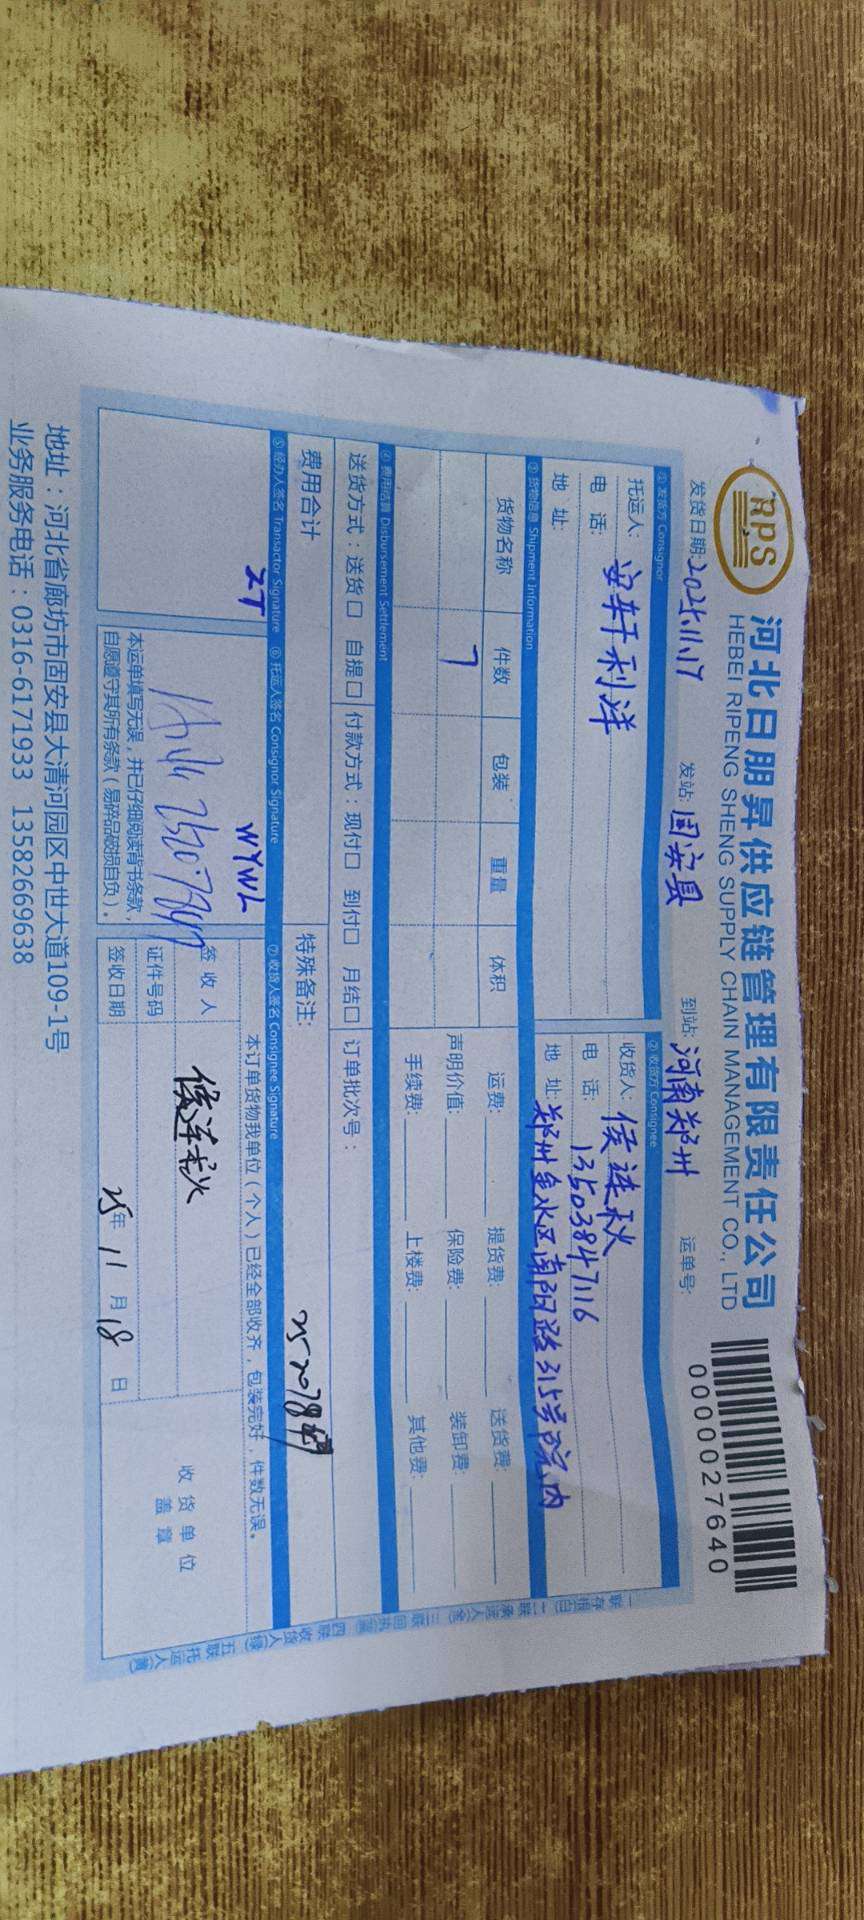 RPS
河北日朋昇供应链管理有限责任公司
HEBEI RIPENG SHENG SUPPLY CHAIN MANAGEMENT CO., LTD
0000027640
发货日期:2025.11.17 发站: 固安县 到站: 河南郑州 运单号:
① 发货方 Consignor ② 收货方 Consignee
托运人: 安轩利洋 收货人: 侯连秋
电 话: 电 话: 13503847116
地 址: 地 址: 郑州金水区南阳路315号院内
③ 货物信息 Shipment Information
货物名称 件数 包装 重量 体积 运费: 提货费: 送货费:
7 声明价值: 保险费: 装卸费:
手续费: 上楼费: 其他费:
④ 费用结算 Disbursement Settlement
送货方式:送货□ 自提□ 付款方式:现付□ 到付□ 月结□ 订单批次号:
费用合计 特殊备注:
⑤ 经办人签名 Transactor Signature ⑥ 托运人签名 Consignor Signature ⑦ 收货人签名 Consignee Signature
ZT WYWL
本订单货物我单位(个人)已经全部收齐,包装完好,件数无误。
签 收 人 侯连秋
收 货 单 位
盖 章
证件号码
本运单填写无误,并已仔细阅读背书条款,
自愿遵守其所有条款(易碎品破损自负)。
签收日期 25年 11 月 18 日
一联存根(白) 二联承运人(红) 三联回执(蓝) 四联收货人(绿) 五联托运人(黄)
地址:河北省廊坊市固安县大清河园区中世大道109-1号
业务服务电话:0316-6171933 13582669638